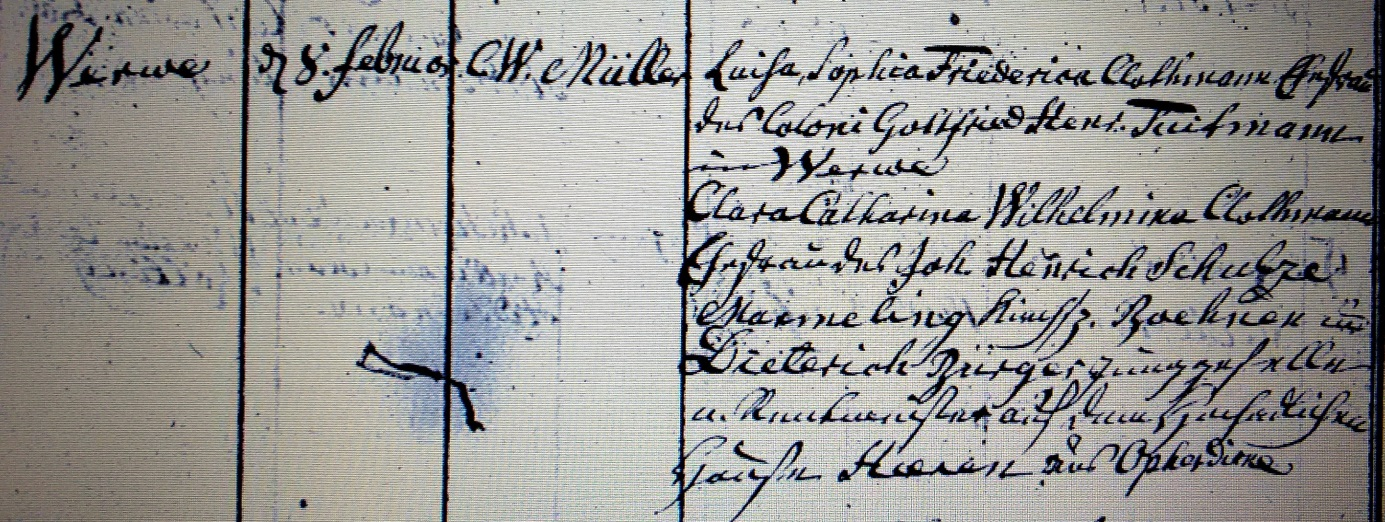 Werwe
d 8. Februar
C. W. Müller
Luisa Sophia Friederica Clothmann Ehefrau
des Coloni Gottfried Henr. Tuitmann
in Werwe
Clara Catharina Wilhelmina Clothmann
Ehefrau des Joh Henrich Schulze
Kirchsp.
Dieterich Bürger Junggeselle
u. Rentmeister auf dem
Hause Heeren aus Opherdicke